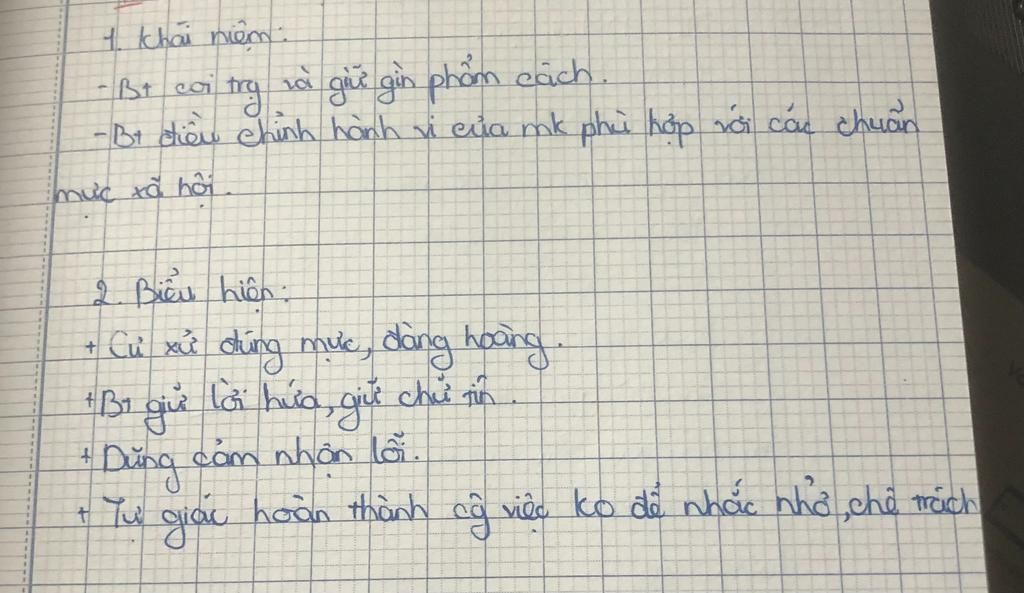 1. Khái niệm:
- Bt coi trg và giữ gìn phẩm cách.
- Bt điều chỉnh hành vi của mk phù hợp với các chuẩn
mực xã hội.
2. Biểu hiện:
+ Cư xử đúng mực, đàng hoàng.
+ Bt giữ lời hứa, giữ chữ tín.
+ Dũng cảm nhận lỗi.
+ Tự giác hoàn thành cg việc ko để nhắc nhở, chê trách